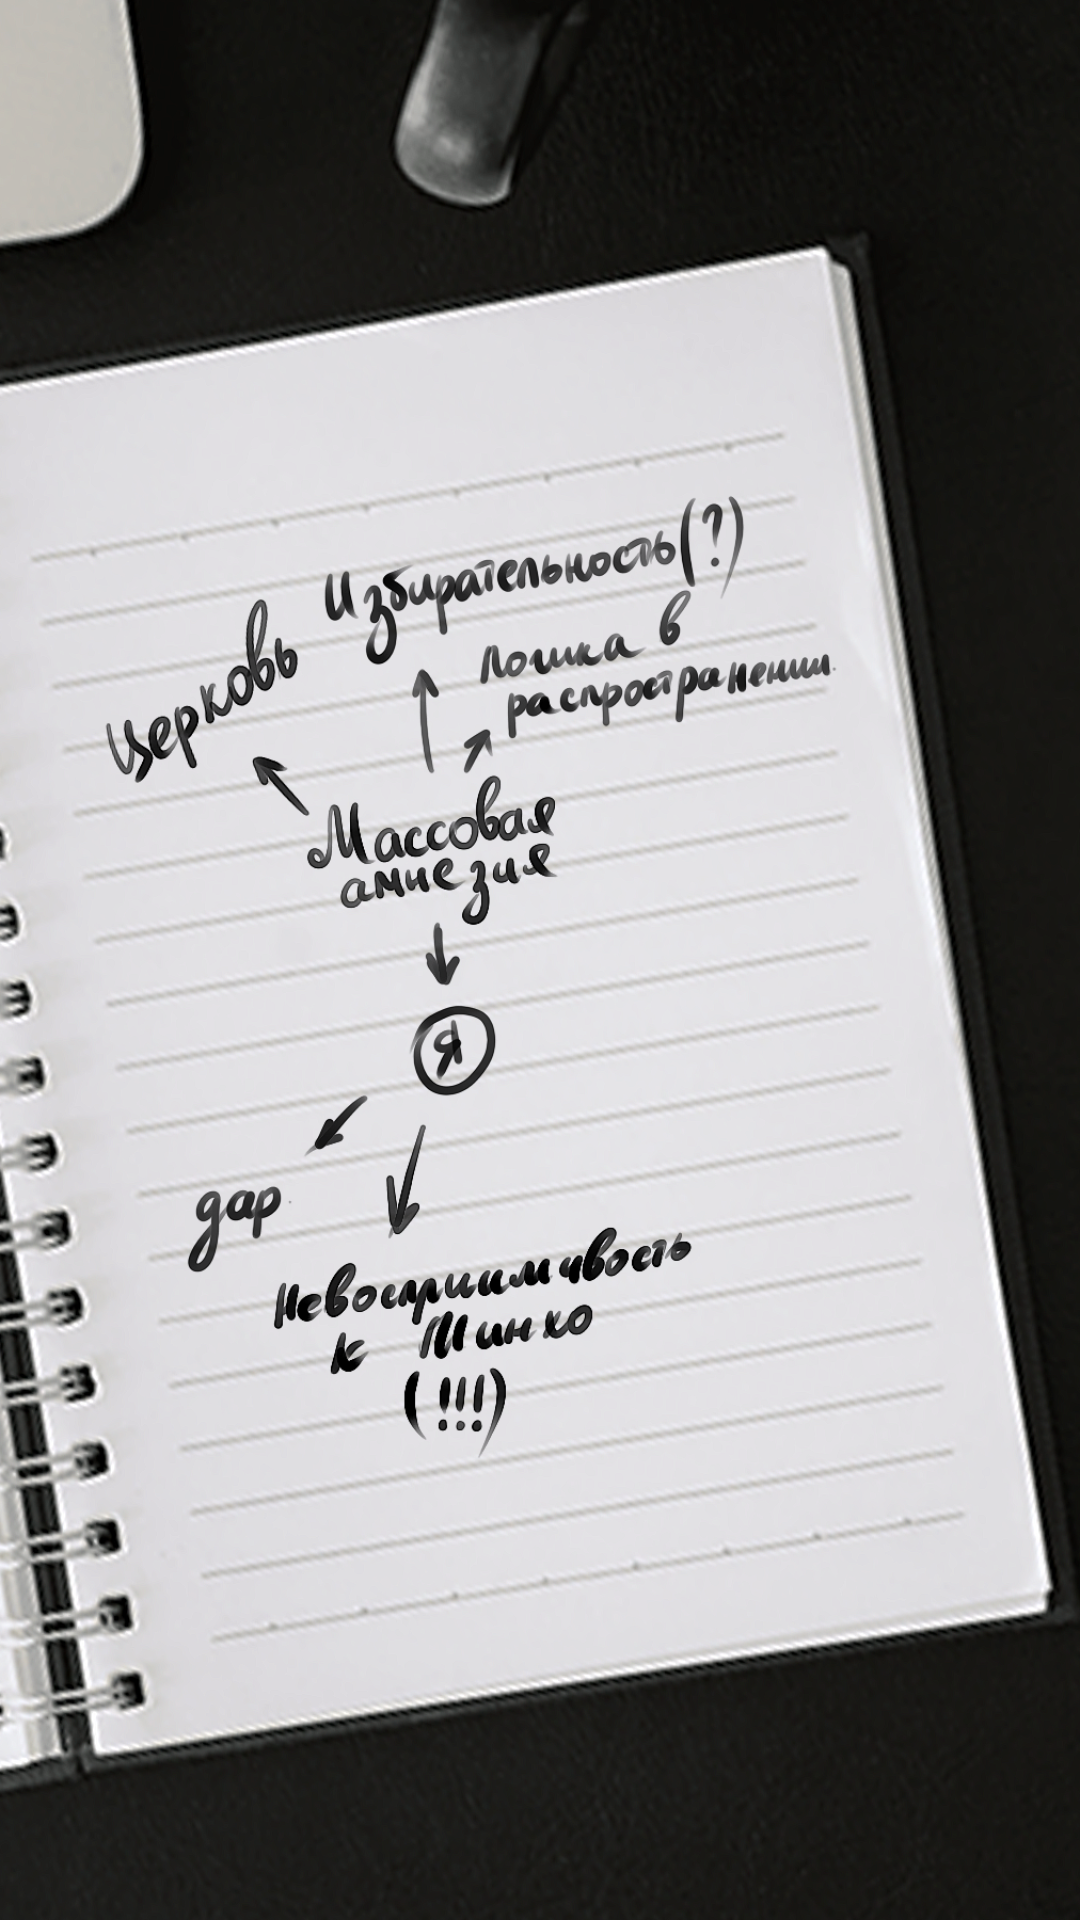 Избирательность(?)
Церковь
Логика в
распространении.
Массовая
амнезия
Я
дар
Невосприимчвость
к Минхо
(!!!)